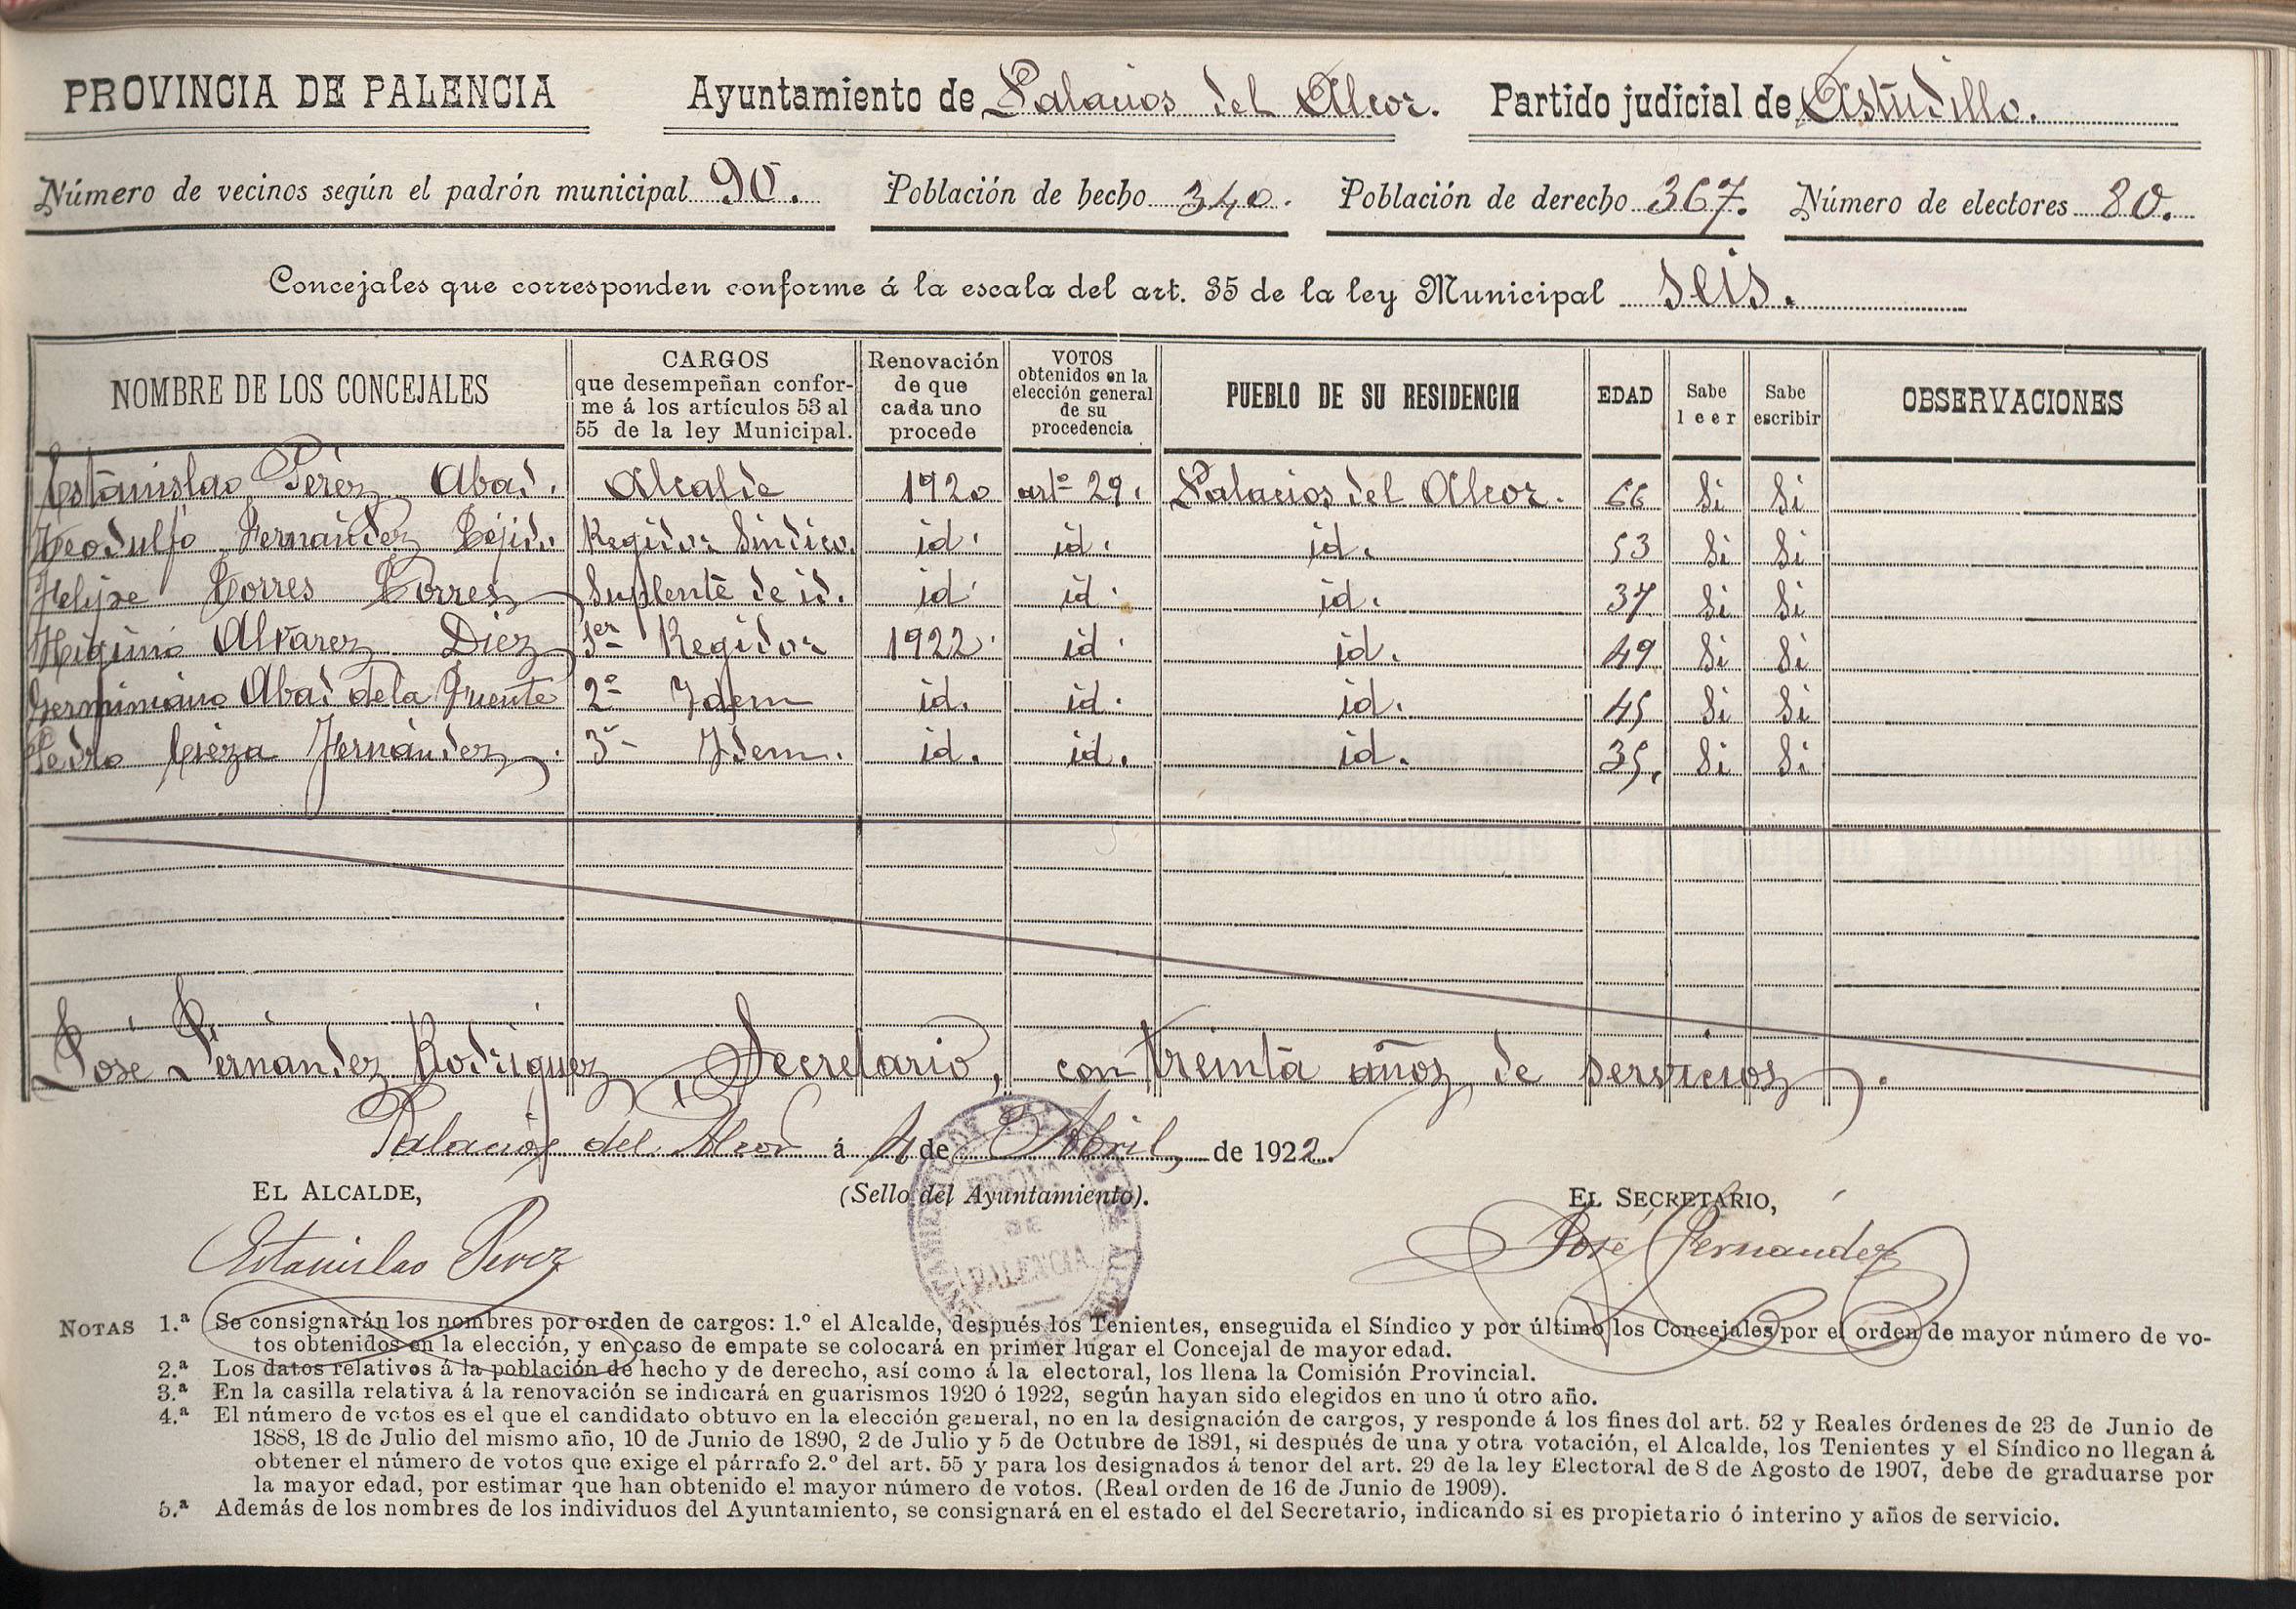 PROVINCIA DE PALENCIA Ayuntamiento de Palacios del Alcor. Partido judicial de Astudillo.
Número de vecinos según el padrón municipal 90. Población de hecho 340. Población de derecho 367. Número de electores 80.
Concejales que corresponden conforme á la escala del art. 35 de la ley Municipal seis.
NOMBRE DE LOS CONCEJALES CARGOS que desempeñan confor- me á los artículos 53 al 55 de la ley Municipal. Renovación de que cada uno procede VOTOS obtenidos en la elección general de su procedencia PUEBLO DE SU RESIDENCIA EDAD Sabe leer Sabe escribir OBSERVACIONES
Estanislao Pérez Abad. Alcalde 1920 artº 29. Palacios del Alcor. 66 Si Si
Teodulfo Fernández Tejido Regidor Síndico. id. id. id. 53 Si Si
Felipe Torres Torres Suplente de id. id. id. id. 37 Si Si
Higinio Alvarez Diez 1er Regidor 1922. id. id. 49 Si Si
Germiniano Abad de la Fuente 2º Idem id. id. id. 45 Si Si
Pedro Cieza Fernández. 3º Idem. id. id. id. 35. Si Si
José Fernández Rodríguez, Secretario, con treinta años de servicios.
Palacios del Alcor á 4 de Abril de 1922.
EL ALCALDE, (Sello del Ayuntamiento). EL SECRETARIO,
Estanislao Perez José Fernández
DE
PALENCIA
NOTAS 1.ª Se consignarán los nombres por orden de cargos: 1.º el Alcalde, después los Tenientes, enseguida el Síndico y por último los Concejales por el orden de mayor número de vo-
tos obtenidos en la elección, y en caso de empate se colocará en primer lugar el Concejal de mayor edad.
2.ª Los datos relativos á la población de hecho y de derecho, así como á la electoral, los llena la Comisión Provincial.
3.ª En la casilla relativa á la renovación se indicará en guarismos 1920 ó 1922, según hayan sido elegidos en uno ú otro año.
4.ª El número de votos es el que el candidato obtuvo en la elección general, no en la designación de cargos, y responde á los fines del art. 52 y Reales órdenes de 23 de Junio de
1888, 18 de Julio del mismo año, 10 de Junio de 1890, 2 de Julio y 5 de Octubre de 1891, si después de una y otra votación, el Alcalde, los Tenientes y el Síndico no llegan á
obtener el número de votos que exige el párrafo 2.º del art. 55 y para los designados á tenor del art. 29 de la ley Electoral de 8 de Agosto de 1907, debe de graduarse por
la mayor edad, por estimar que han obtenido el mayor número de votos. (Real orden de 16 de Junio de 1909).
5.ª Además de los nombres de los individuos del Ayuntamiento, se consignará en el estado el del Secretario, indicando si es propietario ó interino y años de servicio.